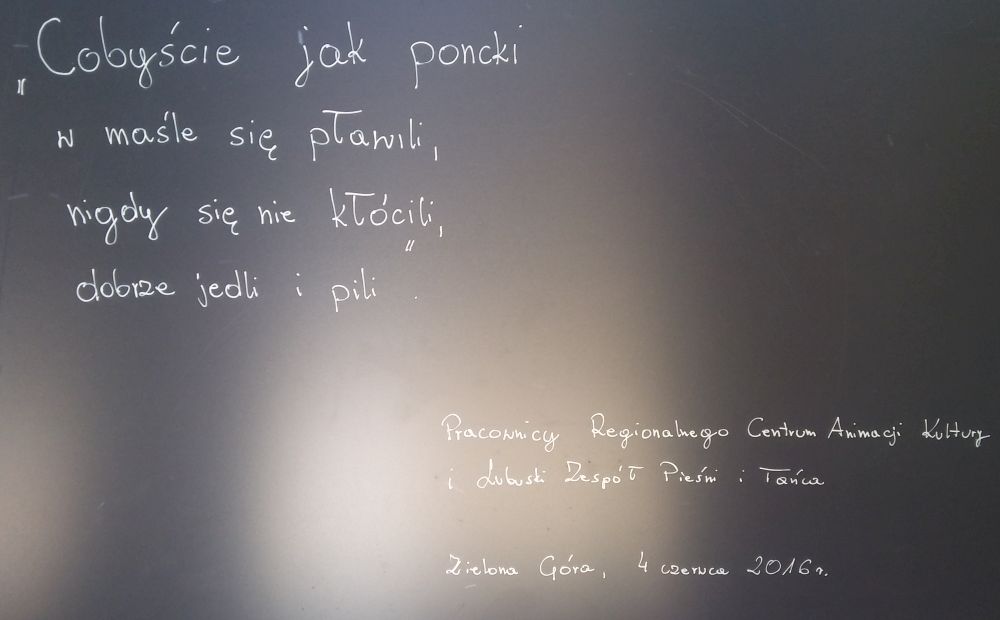 „Cobyście jak poncki
w maśle się pławili,
nigdy się nie kłócili,
dobrze jedli i pili."
Pracownicy Regionalnego Centrum Animacji Kultury
i Lubuski Zespół Pieśni i Tańca
Zielona Góra, 4 czerwca 2016 r.